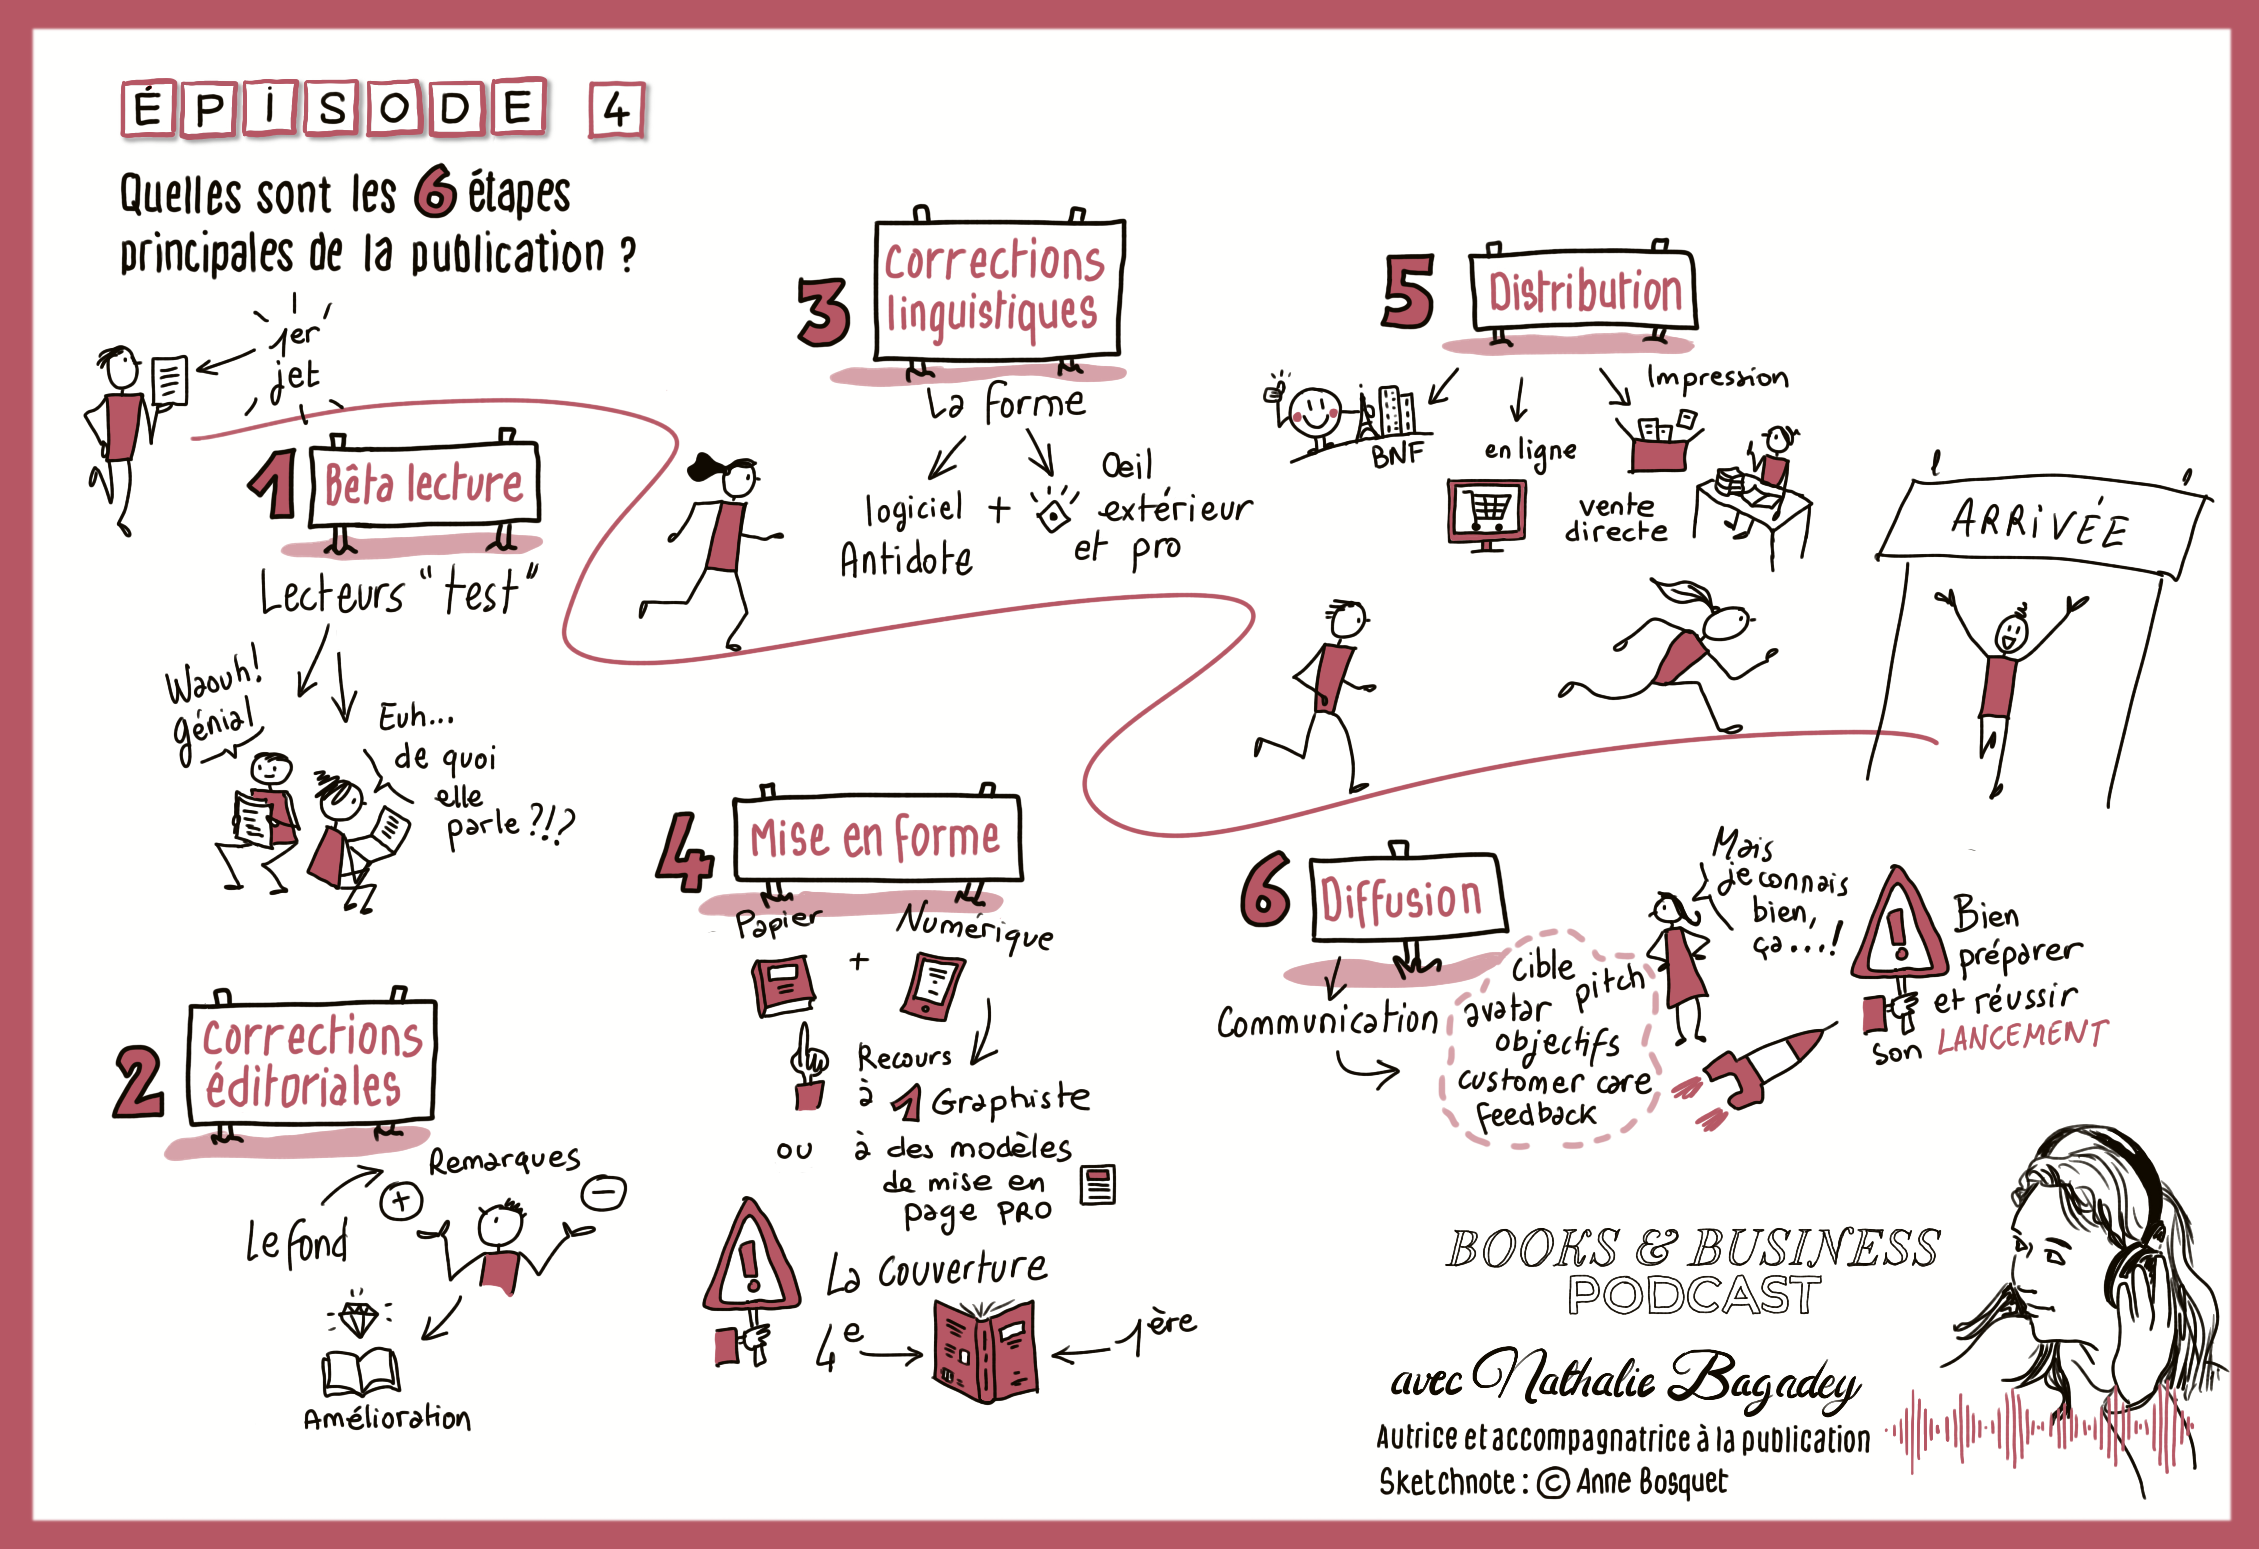 ÉPISODE 4
Quelles sont les 6 étapes
principales de la publication ?
1er
jet
1 Bêta lecture
Lecteurs "test"
Waouh!
génial
Euh...
de quoi
elle
parle ?!?
2 Corrections
éditoriales
Le fond
Remarques
+
−
Amélioration
3 Corrections
linguistiques
La forme
logiciel
Antidote
+
Œil
extérieur
et pro
4 Mise en forme
Papier
+
Numérique
Recours
à 1 Graphiste
ou à des modèles
de mise en
page PRO
!
La couverture
4e
1ère
5 Distribution
BNF
en ligne
Impression
vente
directe
ARRIVÉE
6 Diffusion
Communication
cible
pitch
avatar
objectifs
customer care
feedback
Mais
je connais
bien,
ça...!
!
Bien
préparer
et réussir
son LANCEMENT
BOOKS & BUSINESS
PODCAST
avec Nathalie Bagadey
Autrice et accompagnatrice à la publication
Sketchnote : © Anne Bosquet